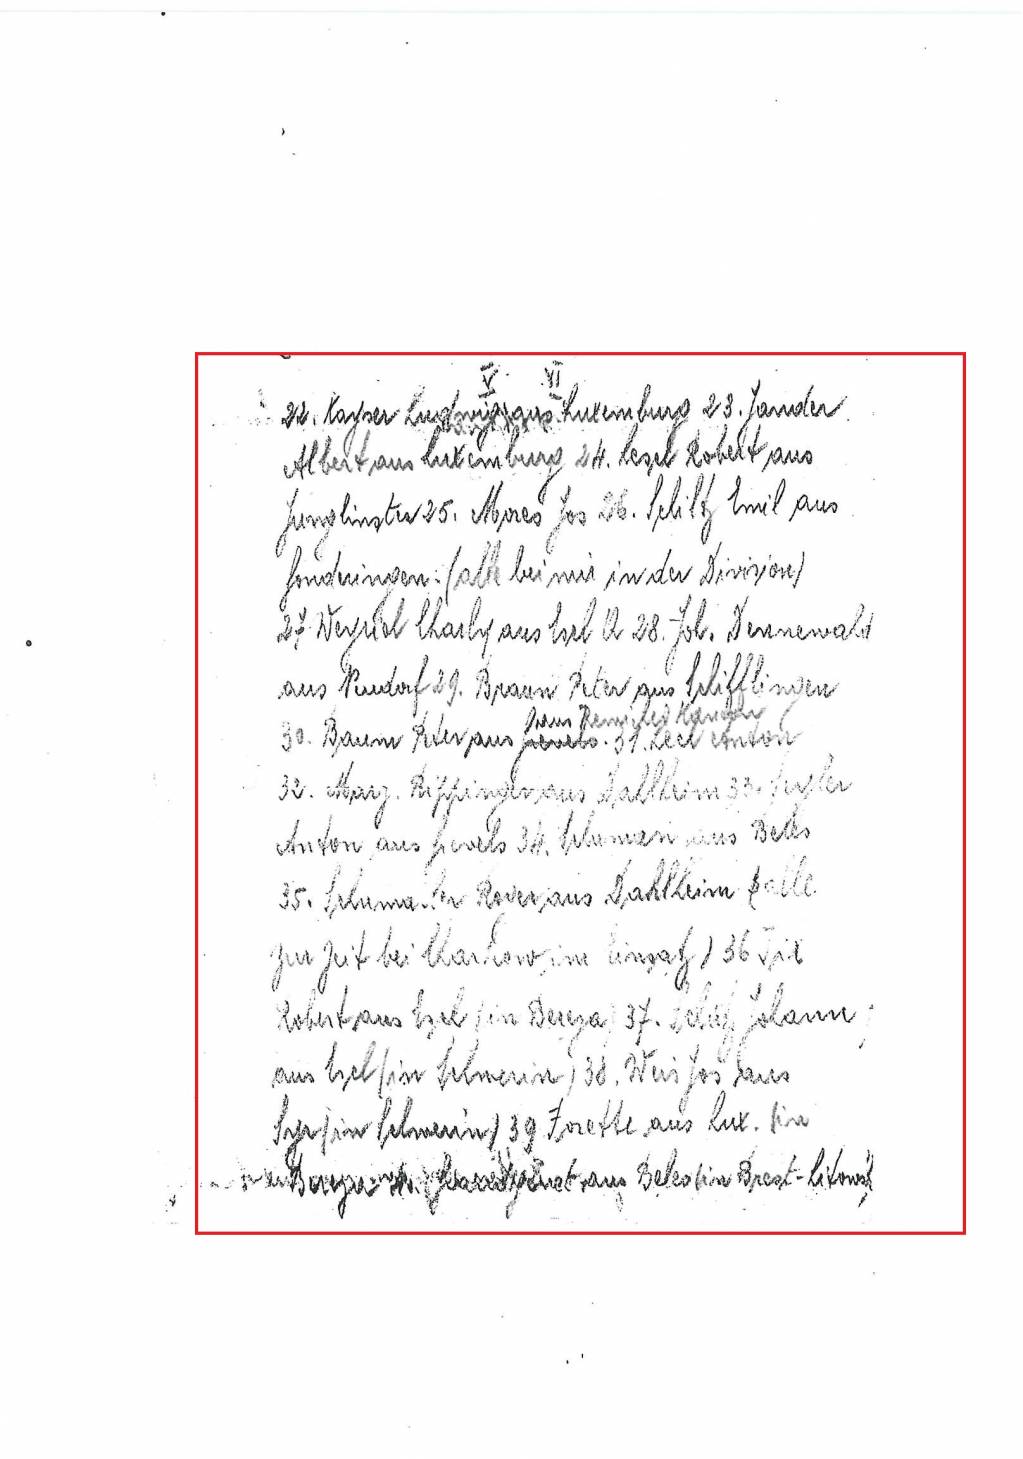 V VI
22. Kayser Ludwig aus Luxemburg 23. Jander
Albert aus Luxemburg 24. Esch Robert aus
Junglinster 25. Mores Jos 26. Schiltz Emil aus
Gonderingen. (alle bei mir in der Division)
27 Weyrich Charly aus Esel A 28. Joh. Dennewald
aus Neudorf 29. Braun Peter aus Schifflingen
aus Remich
30. Baum Peter aus Grevels. 31. Lech Anton
32. Marz. Rippinger aus Dahlheim 33.
Anton aus Grevels 34. Schuman aus Beles
35. Roger aus Dahlheim (alle
zur Zeit bei Charkow im Einsatz) 36
Robert aus Esel (in Bereza) 37. Johann
aus Esel (in Schwerin) 38. Weis Jos aus
Syr (in Schwerin) 39 Zorette aus Lux. (in
Bereza aus Beles (in Brest-Litowsk